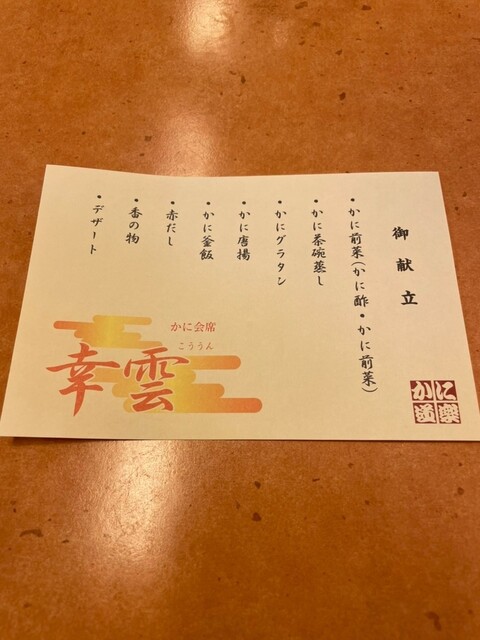 御献立
・かに前菜(かに酢・かに前菜)
・かに茶碗蒸し
・かにグラタン
・かに唐揚
・かに釜飯
・赤だし
・香の物
・デザート
かに会席
こううん
幸雲
かに道楽